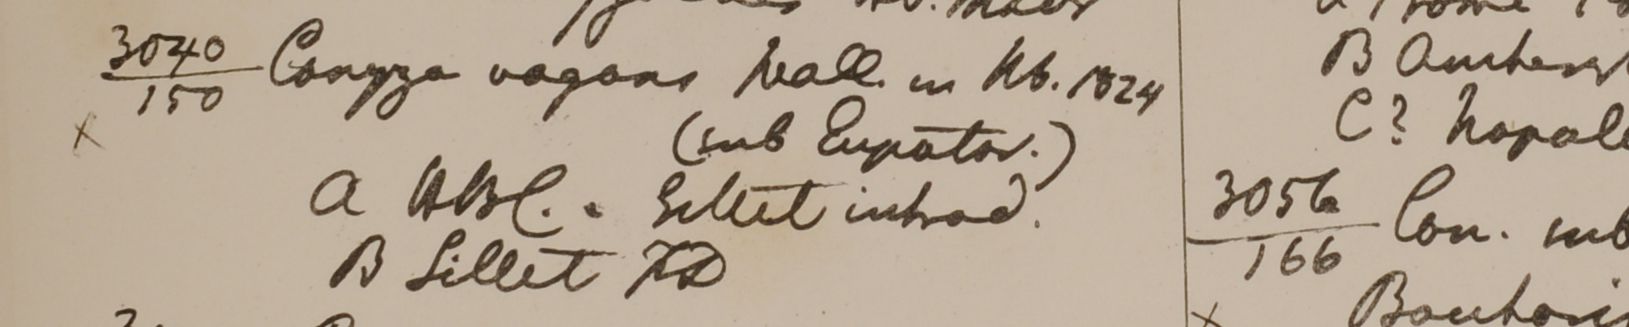 3040
150
Conyza vagans Wall. in Hb. 1824
(sub Eupator.)
a HBC. - Sillet introd.
B Sillet FD
B Amherst
C? Napal
3056
166
Con.